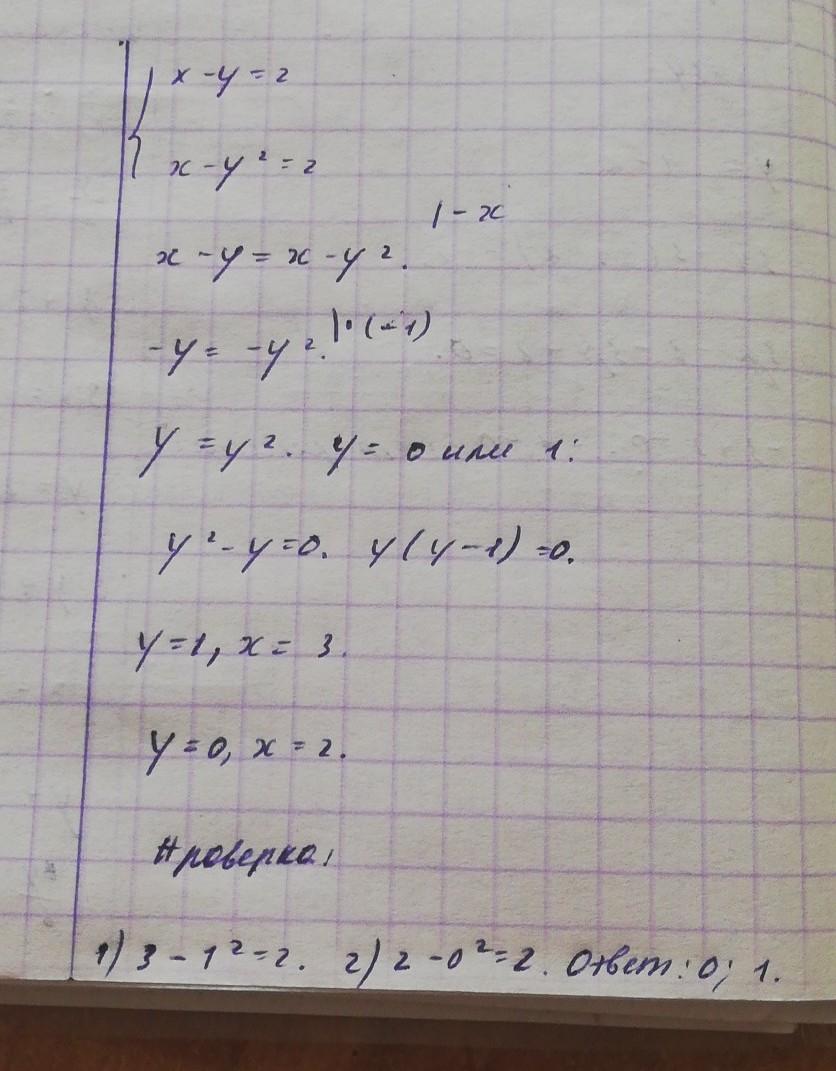 x - y = 2
x - y² = 2
| - x
x - y = x - y².
-y = -y². | · (-1)
y = y². y = 0 или 1:
y² - y = 0. y(y - 1) = 0.
y = 1, x = 3.
y = 0, x = 2.
Проверка:
1) 3 - 1² = 2. 2) 2 - 0² = 2. Ответ: 0; 1.